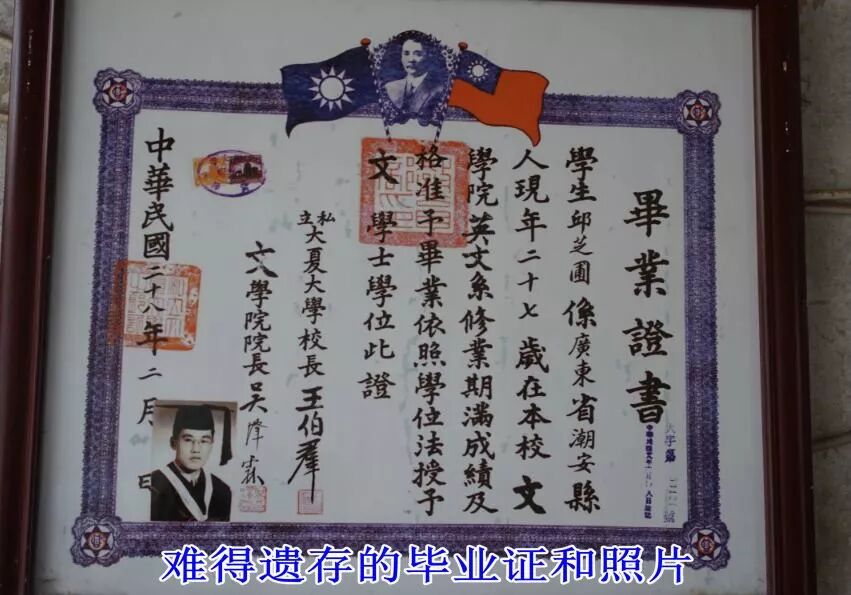 畢業證書
學生邱芝圃係廣東省潮安縣
人現年二十七歲在本校文
學院英文系修業期滿成績及
格准予畢業依照學位法授予
文學士學位此證
私立大夏大學校長王伯羣
文學院院長吳澤霖
中華民國二十八年二月 日
难得遗存的毕业证和照片